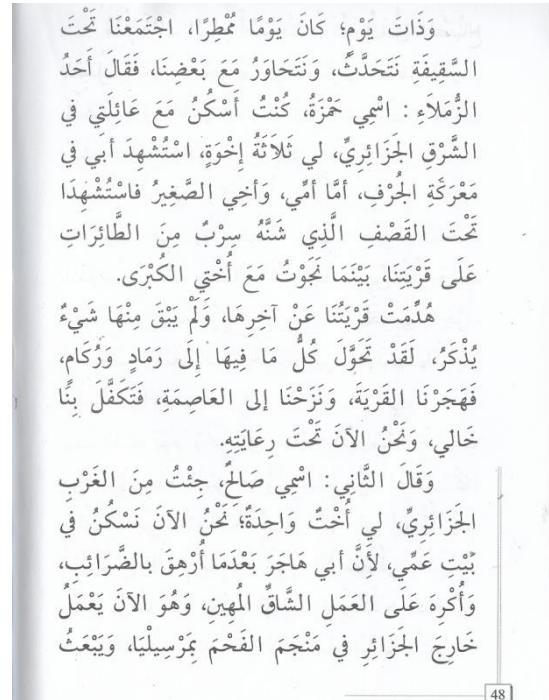 وَذَاتَ يَوْمٍ؛ كَانَ يَوْمًا مُمْطِرًا، اجْتَمَعْنَا تَحْتَ
السَّقِيفَةِ نَتَحَدَّثُ، وَنَتَحَاوَرُ مَعَ بَعْضِنَا، فَقَالَ أَحَدُ
الزُّمَلَاءِ : اسْمِي حَمْزَةُ، كُنْتُ أَسْكُنُ مَعَ عَائِلَتِي في
الشَّرْقِ الجَزَائِرِيِّ، لي ثَلَاثَةُ إِخْوَةٍ، اسْتُشْهِدَ أَبي في
مَعْرَكَةِ الجُرْفِ، أمَّا أمِّي، وَأَخِي الصَّغِيرُ فاسْتُشْهِدَا
تَحْتَ القَصْفِ الَّذِي شَنَّهُ سِرْبٌ مِنَ الطَّائِرَاتِ
عَلَى قَرْيَتِنَا، بَيْنَمَا نَجَوْتُ مَعَ أُخْتِي الكُبْرَى.
هُدِّمَتْ قَرْيَتُنَا عَنْ آخِرِهَا، وَلَمْ يَبْقَ مِنْهَا شَيْءٌ
يُذْكَرُ، لَقَدْ تَحَوَّلَ كُلُّ مَا فِيهَا إِلَى رَمَادٍ وَرُكَامٍ،
فَهَجَرْنَا القَرْيَةَ، وَنَزَحْنَا إلى العَاصِمَةِ، فَتَكَفَّلَ بِنَّا
خَالي، وَنَحْنُ الآنَ تَحْتَ رِعَايَتِهِ.
وَقَالَ الثَّانِي : اسْمِي صَالِحٌ، جِئْتُ مِنَ الغَرْبِ
الجَزَائِرِيِّ، لي أُخْتٌ وَاحِدَةٌ؛ نَحْنُ الآنَ نَسْكُنُ في
بَيْتِ عَمِّي، لأِنَّ أبي هَاجَرَ بَعْدَمَا أُرْهِقَ بالضَّرَائِبِ،
وَأُكْرِهَ عَلَى العَمَلِ الشَّاقِّ المُهِينِ، وَهُوَ الآنَ يَعْمَلُ
خَارِجَ الجَزَائِرِ في مَنْجَمَ الفَحْمِ بِمَرْسِيلْيَا، وَيَبْعَثُ
48